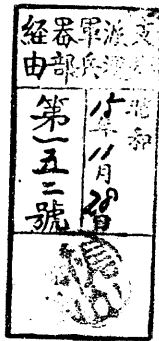 支那派遣
軍兵
器部
経由
昭和
15年11月28日
第一五二號